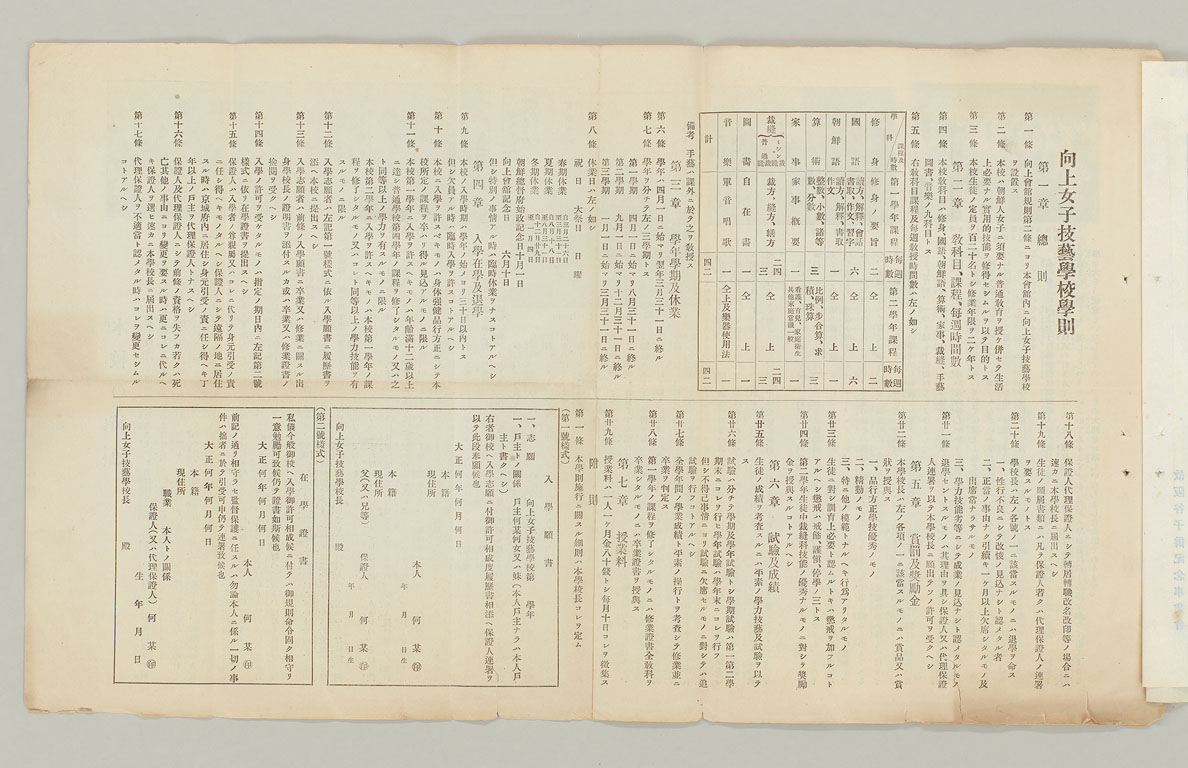 向上女子技藝學校學則
第一章 總則
第一條 向上會館規則第二條ニヨリ本會館內ニ向上女子技藝學校
ヲ設置ス
第二條 本校ハ朝鮮人女子ニ須要ナル普通敎育ヲ授ケ倂セテ生活
上必要ナル實用的技藝ヲ修得セシムルヲ以テ目的トス
第三條 本校生徒ノ定員ヲ百二十名トシ修業年限ヲ二ケ年トス
第二章 敎科目、課程、每週時間數
第四條 本校敎科目ハ修身、國語、朝鮮語、算術、家事、裁縫、手藝
圖書、音樂ノ九科目トス
第五條 右敎科目課程及每週敎授時間數ハ左ノ如シ
學科 課程及時數 第一學年課程 每週時數 第二學年課程 每週時數
修身 修身ノ要旨 二 仝上 二
國語 讀方、解釋、會話 書取、作文、習字 六 仝上 六
朝鮮語 讀方、解釋、書取 作文 一 仝上 一
算術 整數、小數、諸等 數、分數 三 比例、步合算、求 積、珠算 三
家事 家事槪要 一 看護、育兒、家庭衛生 其他家庭常識一般 一
裁縫 裁方、縫方、繕方 二四 三 仝上 二四 三
圖畫 自在畫 一 仝上 一
音樂 單音唱歌 一 仝上及樂器使用法 一
計 四二 四二
備考 手藝ハ課外ニ於テ之ヲ敎授ス
第三章 學年學期及休業
第六條 學年ハ四月一日ニ始リ翌年三月三十一日ニ終ル
第七條 學年ヲ分チテ左ノ三學期トス
第一學期 四月一日ニ始リ八月三十一日ニ終ル
第二學期 九月一日ニ始リ十二月三十一日ニ終ル
第三學期 一月一日ニ始リ三月三十一日ニ終ル
第八條 休業日ハ左ノ如シ
祝日 大祭日 日曜
春期休業
夏期休業
冬期休業
朝鮮總督府始政記念日十月一日
向上會館記念日 六月十日
但シ特別ノ事情アル時ハ臨時休業ヲナスコトアルヘシ
第四章 入學在學及退學
第九條 本校ノ入學期ハ學年ノ始メヨリ三十日以內トス
但シ欠員アル時ハ臨時入學ヲ許スコトアルヘシ
第十條 本校ニ入學ヲ許スヘキモノハ身体强健品行方正ニシテ本
校所定ノ課程ヲ卒ヘ得ル見込アルモノニ限ル
第十一條 本校第一學年ニ入學ヲ許スヘキモノハ年齡滿十二歲以上
ニ達シ普通學校第四學年ノ課程ヲ修了シタルモノ又ハ之
ト同等以上ノ學力ヲ有スルモノニ限ル
本校第二學年ニ入學ヲ許スヘキモノハ本校第一學年ノ課
程ヲ修了シタルモノ又ハコレト同等以上ノ學力技能ヲ有
スルモノニ限ル
第十二條 入學志願者ハ左記第一號樣式ニ依ル入學願書ニ履歷書ヲ
添ヘ本校ニ提出スヘシ
第十三條 入學志願者ハ前條ノ入學願書ニ卒業又ハ修業ニ關スル出
身學校長ノ證明書ヲ添付スルカ或ハ卒業又ハ修業證書ノ
檢閱ヲ受クヘシ
第十四條 入學ノ許可ヲ受ケタルモノハ指定ノ期日內ニ左記第二號
樣式ニ依リ在學證書ヲ提出スヘシ
第十五條 保證人ハ入學者ノ尊親屬又ハコレニ代リテ身元引受ノ責
ニ任シ得ヘキモノタルヘシ保證人ニシテ遠隔ノ地ニ居住
スル時ハ京城府內ニ居住シ身元引受ノ責ニ任シ得ヘキ丁
年以上ノ戶主ヲ代理保證人トナスヘシ
第十六條 保證人及代理保證人ニシテ前條ノ資格ヲ失フカ若クハ死
亡其他ノ事由ニヨリ變更ヲ要スル時ハ更ニコレニ代ルヘ
キ保證人ヲ選ヒ速ニ本學校長ニ屆出スヘシ
第十七條 代理保證人ヲ不適當ト認メタル時ハコレヲ變更セシムル
コトアルヘシ
第十八條 保證人代理保證人ニシテ轉居轉職改名改印等ノ場合ニハ
速ニ本學校長ニ屆出スヘシ
第十九條 生徒ノ願屆書類ハ凡テ保證人若クハ代理保證人ノ連署
ヲ要スルモノトス
第二十條 學校長ハ左ノ各號ノ一ニ該當スルモノニハ退學ヲ命ス
一、性行不良ニシテ改悛ノ見込ナシト認メタル者
二、正當ノ事由ナク引續キ一ケ月以上欠席シタルモノ及
出席常ナラサルモノ
三、學力技能劣等ニシテ成業ノ見込ナシト認メタルモノ
退學セントスルモノハ其理由ヲ具シ保證人又ハ代理保證
人連署ヲ以テ本學校長ニ願出テソノ許可ヲ受クヘシ
第五章 賞罰及奬勵金
第廿二條 本學校長ハ左ノ各項ノ一ニ該當スルモノニハ賞品又ハ賞
狀ヲ授與ス
一、品行方正學技優秀ノモノ
二、精勤ノモノ
三、特ニ他ノ模範トナルヘキ行爲アリタルモノ
第廿三條 生徒ニ對シ訓育上必要ト認ムルトキハ懲戒ヲ加フルコト
アルヘシ懲戒ハ戒飭、謹愼、停學ノ三トス
第廿四條 第二學年生徒中裁縫科技能ノ優秀ナルモノニ對シテ奬勵
金ヲ授與スルコトアルヘシ
第六章 試驗及成績
第廿五條 生徒ノ成績ヲ考査スルニハ平素ノ學力技藝及試驗ヲ以テ
ス
第廿六條 試驗ハ分チテ學期及學年試驗トシ學期試驗ハ第一第二學
期末ニコレヲ行ヒ學年試驗ハ學年末ニコレヲ行フ
但シ不得已事情ニヨリ試驗ニ欠席セルモノニ對シテハ追
試驗ヲ行フコトアルヘシ
第廿七條 全學年間ノ學業成績ト平素ノ操行トヲ考査シテ修業並ニ
卒業ヲ判定ス
第廿八條 第一學年ノ課程ヲ修了シタルモノニハ修業證書全敎科ヲ
卒業シタルモノニハ卒業證書ヲ授與ス
第七章 授業料
第廿九條 授業料ハ一人一ケ月金八十錢トシ每月十日コレヲ徵集ス
附則
第一條 本學則施行ニ關スル細則ハ本學校長コレヲ定ム
(第一號樣式)
入學願書
一、志願 向上女子技藝學校第 學年
一、戶主トノ關係 戶主何某何女又ハ妹(本人戶主ナラハ本人戶
主ト書ク)
右者御校ヘ入學志願ニ付御許可相成度履歷書相添ヘ保證人連署ヲ
以テ此段奉願候也
大正何年何月何日
本籍
現住所
本人 何某㊞
年月日生
本籍
現住所
父(又ハ兄等)
保證人 何某㊞
年月日生
向上女子技藝學校長 殿
(第二號樣式)
在學證書
私儀今般御校ヘ入學御許可相成候ニ付テハ御規則命令固ク相守リ
一意勉勵可致候仍テ證書如斯候也
大正何年何月何日
本人 何某㊞
前記ノ通リ相守ラセ監督保護ニ任スルハ勿論本人ニ係ル一切ノ事
件ハ拙者ニ於テ引受可申仍テ連署致候也
大正何年何月何日
本籍
現住所
職業 本人トノ關係
保證人(又ハ代理保證人)何某㊞
生年月日
向上女子技藝學校長 殿